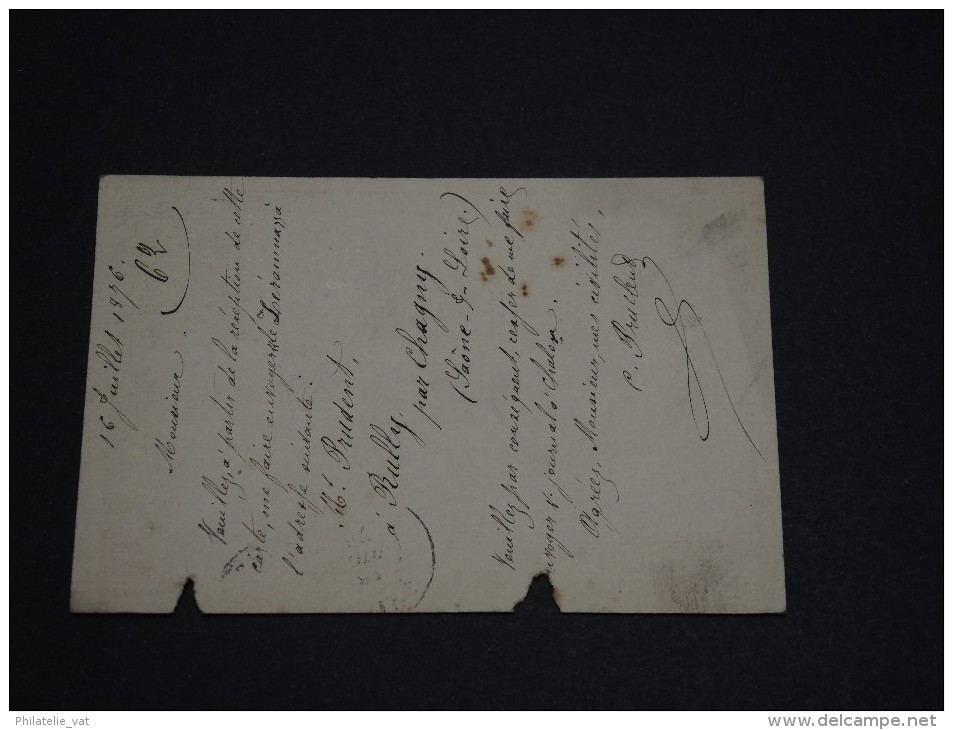 16 Juillet 1876.
62
Monsieur
Veuillez, à partir de la réception de cette
carte, me faire envoyer
l'adresse suivante:
Mr. Prudent,
à Rully,
par Chagny.
(Saône-&-Loire.)
Veuillez, par conséquent, cesser de me faire
envoyer v. journal à
Agréez, Monsieur, mes civilités,
Philatelie_vat
www.delcampe.net